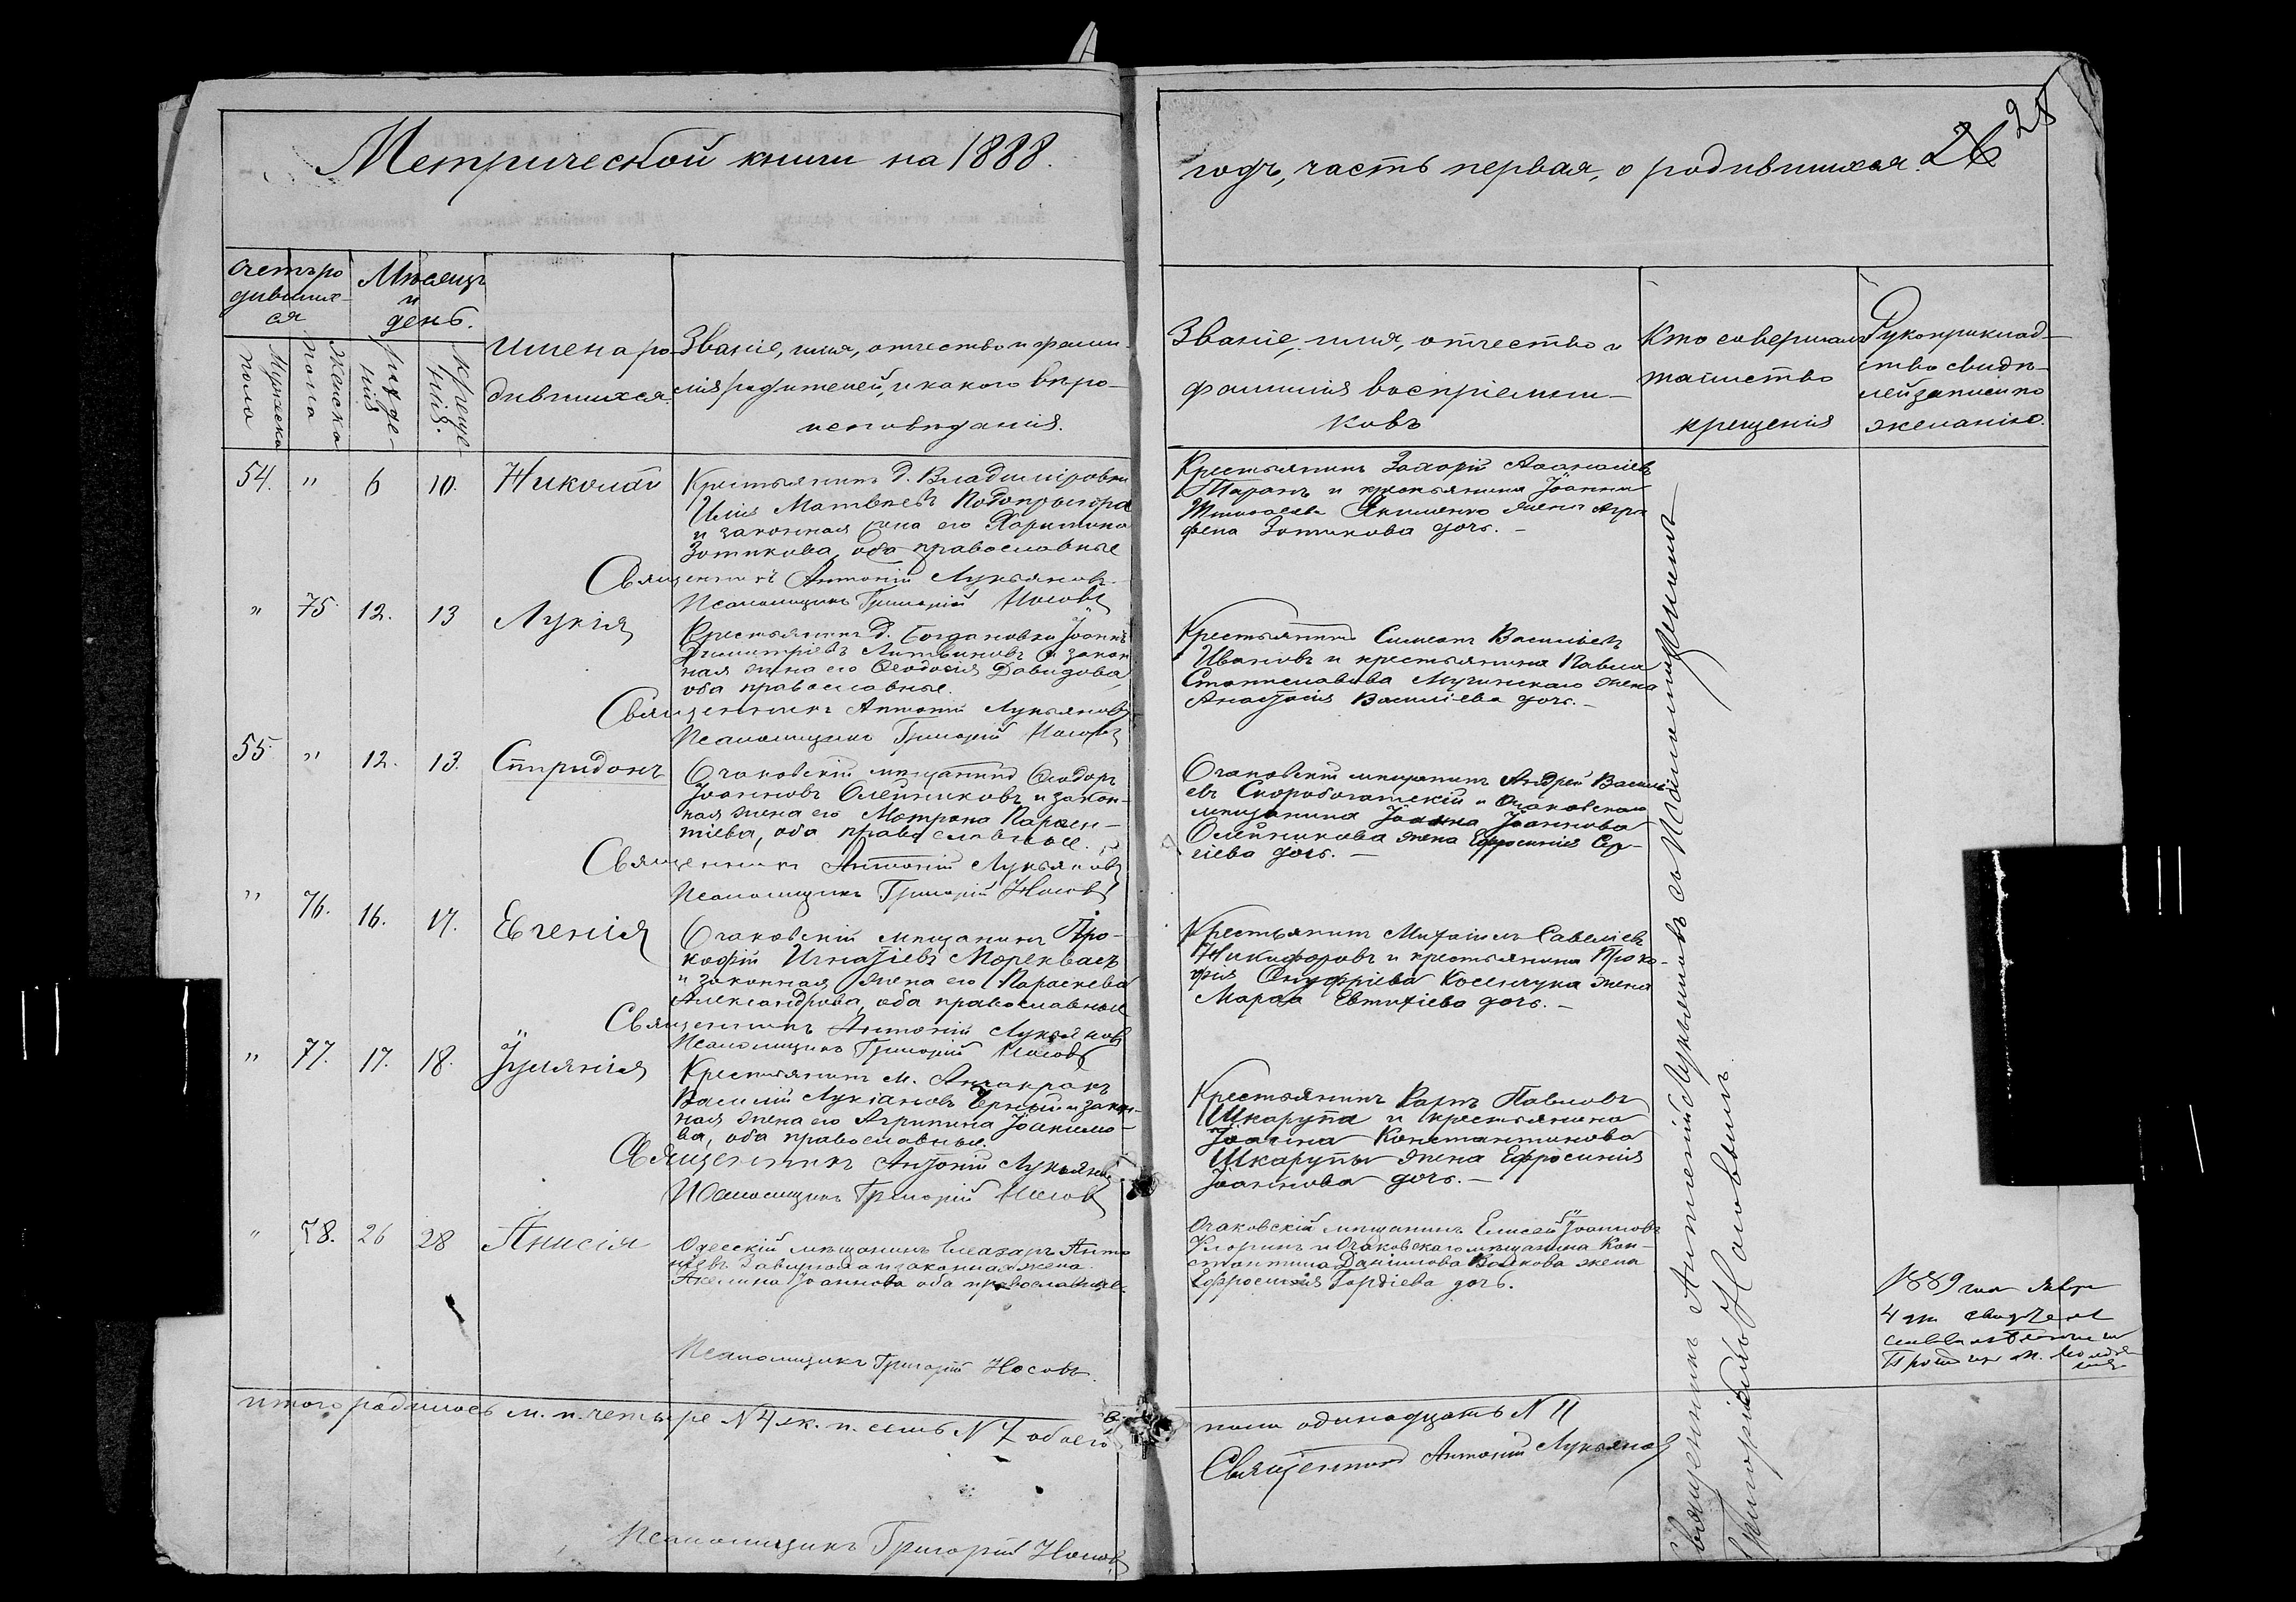 Метрической книги на 1888.
годъ, часть первая, о родившихся.
26 28
Счетъ ро
дивших-
ся
Мѣсяцъ
и
день.
Мужеска
пола
Женска
пола
рожде-
нія
креще-
нія.
Имена ро-
дившихся.
Званіе, имя, отчество и фами-
лія родителей, и какого вѣро-
исповѣданія.
Званіе, имя, отчество и
фамилія воспріемни-
ковъ
Кто совершалъ
таинство
крещенія
Рукоприклад-
ство свидѣ-
лей записи по
желанію.
54. " 6 10. Николай
Крестьянинъ д. Владиміровки
Илія Матвѣевъ Подопрыгора
и законная жена его Харитина
Зотикова, оба православные
Священникъ Антоній Лукьяновъ.
Псаломщикъ Григорій Носовъ
Крестьянинъ Захарій Аѳанасіевъ
Таранъ и крестьянина Іоанна
Якименко жена Агри
фена Зотикова дочь. -
" 75. 12. 13 Лукія
Крестьянинъ д. Богдановки Іоаннъ
Димитріевъ Литвиновъ и закон
ная жена его Ѳеодосія Давидова,
оба православные.
Священникъ Антоній Лукьяновъ
Псаломщикъ Григорій Носовъ
Крестьянинъ Симеонъ Васильевъ
Ивановъ и крестьянина Павла
Станиславова жена
Анастасія Василіева дочь. -
55. " 12. 13. Спиридонъ
Очаковскій мѣщанинъ Ѳеодоръ
Іоанновъ Олейниковъ и закон-
ная жена его Матрона Парѳен-
тіева, оба православные.
Священникъ Антоній Лукьяновъ
Псаломщикъ Григорій Носовъ
Очаковскій мѣщанинъ Андрей Василь
евъ Скоробогатскій и Очаковскаго
мѣщанина Іоанна Іоаннова
Олейникова жена Ефросинія Сер-
гіева дочь. -
" 76. 16. 17. Евгенія
Очаковскій мѣщанинъ Про-
кофій Игнатіевъ Мореквасъ
и законная жена его Параскева
Александрова, оба православные
Священникъ Антоній Лукьяновъ
Псаломщикъ Григорій Носовъ
Крестьянинъ Михаилъ Савеліевъ
Никифоровъ и крестьянина Проко-
фія Онуфріева Косенчука жена
Марѳа Евтихіева дочь. -
" 77. 17. 18. Іуліанія
Крестьянинъ м. Анчакракъ
Василій Лукіановъ Черный и закон-
ная жена его Агрипина Іоакимо-
ва, оба православные.
Священникъ Антоній Лукьяновъ
Псаломщикъ Григорій Носовъ
Крестьянинъ Карпъ Павловъ
Шкарупа и крестьянина
Іоанна Константинова
Шкарупы жена Ефросинія
Іоаннова дочь. -
" 78. 26 28 Анисія
Одесскій мѣщанинъ Елеазаръ Анто
ніевъ и законная жена
Акелина Іоаннова оба православные.
Псаломщикъ Григорій Носовъ.
Очаковскій мѣщанинъ Елисей Іоанновъ
и Очаковскаго мѣщанина Кон-
стантина Даніилова Волкова жена
Ефросинія Гордіева дочь.
Священникъ Антоній Лукьяновъ съ Псаломщикомъ
Григоріемъ Носовымъ.
1889 года Янвр
4 дн
итого родилось м. п. четыре № 4 ж. п. семь № 7 обоего
пола одинадцать № 11
Священникъ Антоній Лукьяновъ
Псаломщикъ Григорій Носовъ